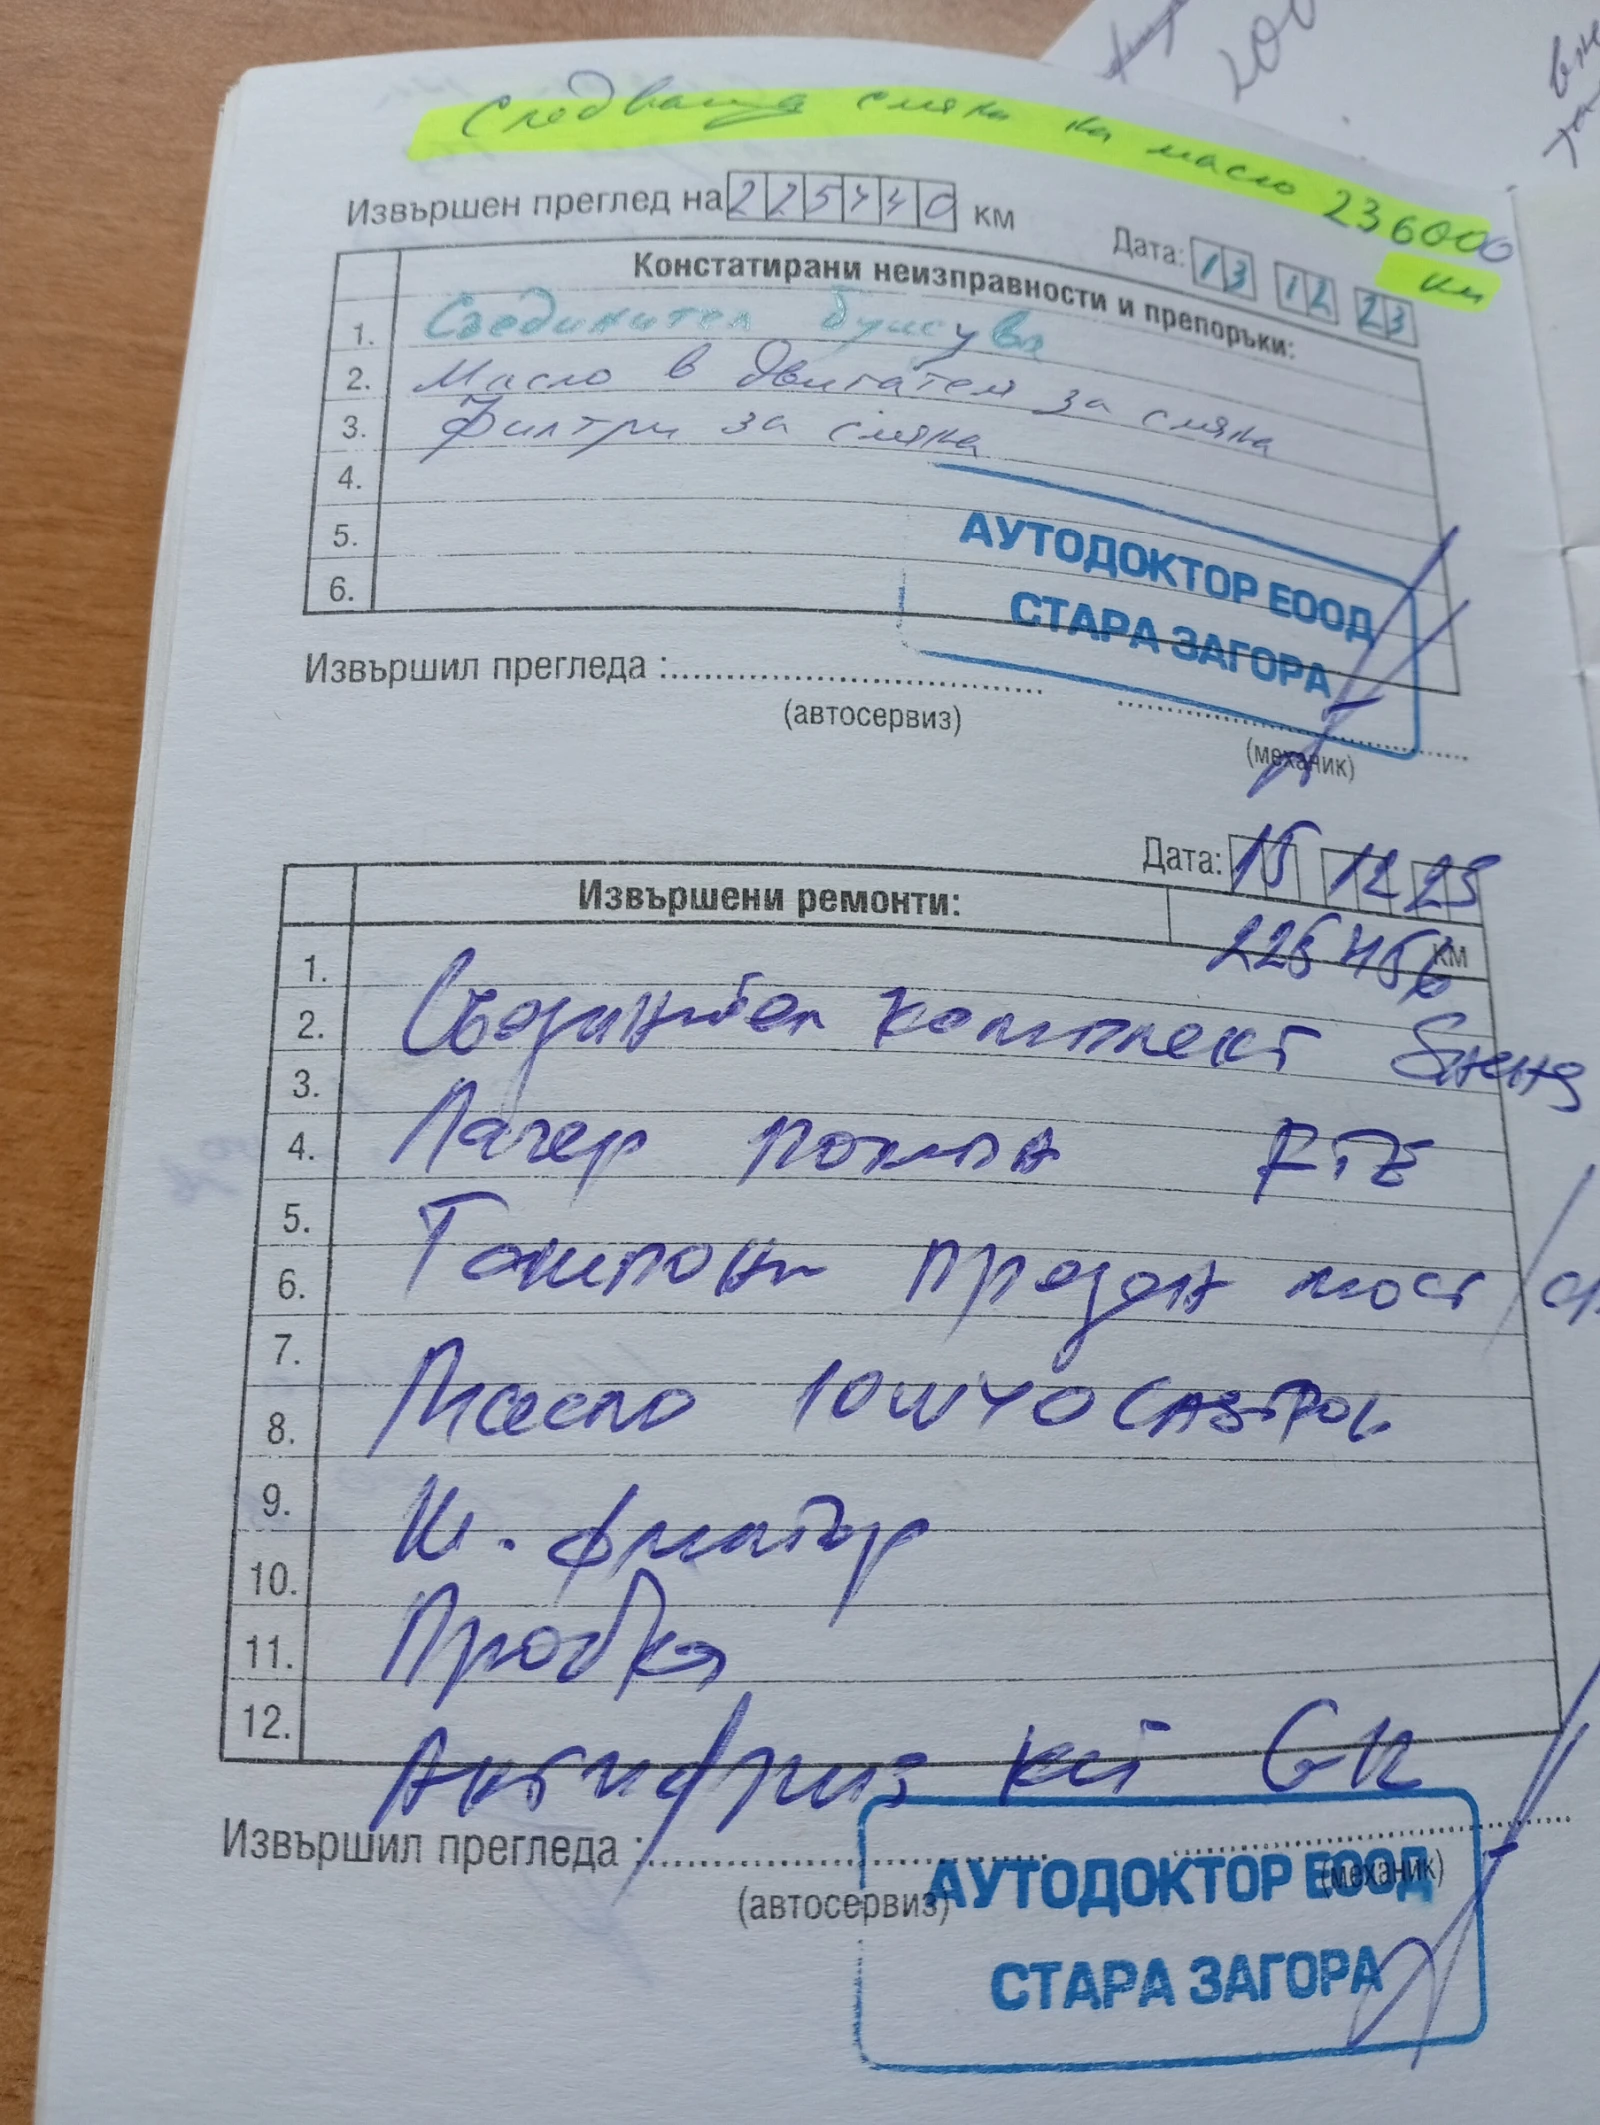 Следваща смяна на масло 236000 км
Извършен преглед на 225440 км
Дата: 13 12 23
Констатирани неизправности и препоръки:
1. Съединител буксува
2. Масло в двигателя за смяна
3. Филтри за смяна
4.
5.
6.
АУТОДОКТОР ЕООД
СТАРА ЗАГОРА
Извършил прегледа :
(автосервиз)
(механик)
Дата: 15 12 23
Извършени ремонти:
225456 км
1.
2. Съединител комплект
3.
4. Лагер помпа FTE
5.
6. Тампони преден мост
7.
8. Масло 10W40 CASTROL
9.
10. М. филтър
11. Пробка
12. Антифриз
Извършил прегледа :
(автосервиз)
(механик)
АУТОДОКТОР ЕООД
СТАРА ЗАГОРА